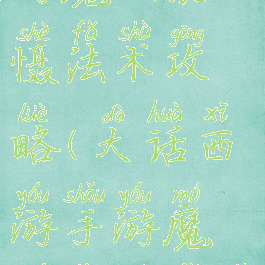 shè fǎ shù gōng
慑法术攻
lüè dà huà xī
略(大话西
yóu shǒu yóu mó
游手游魔